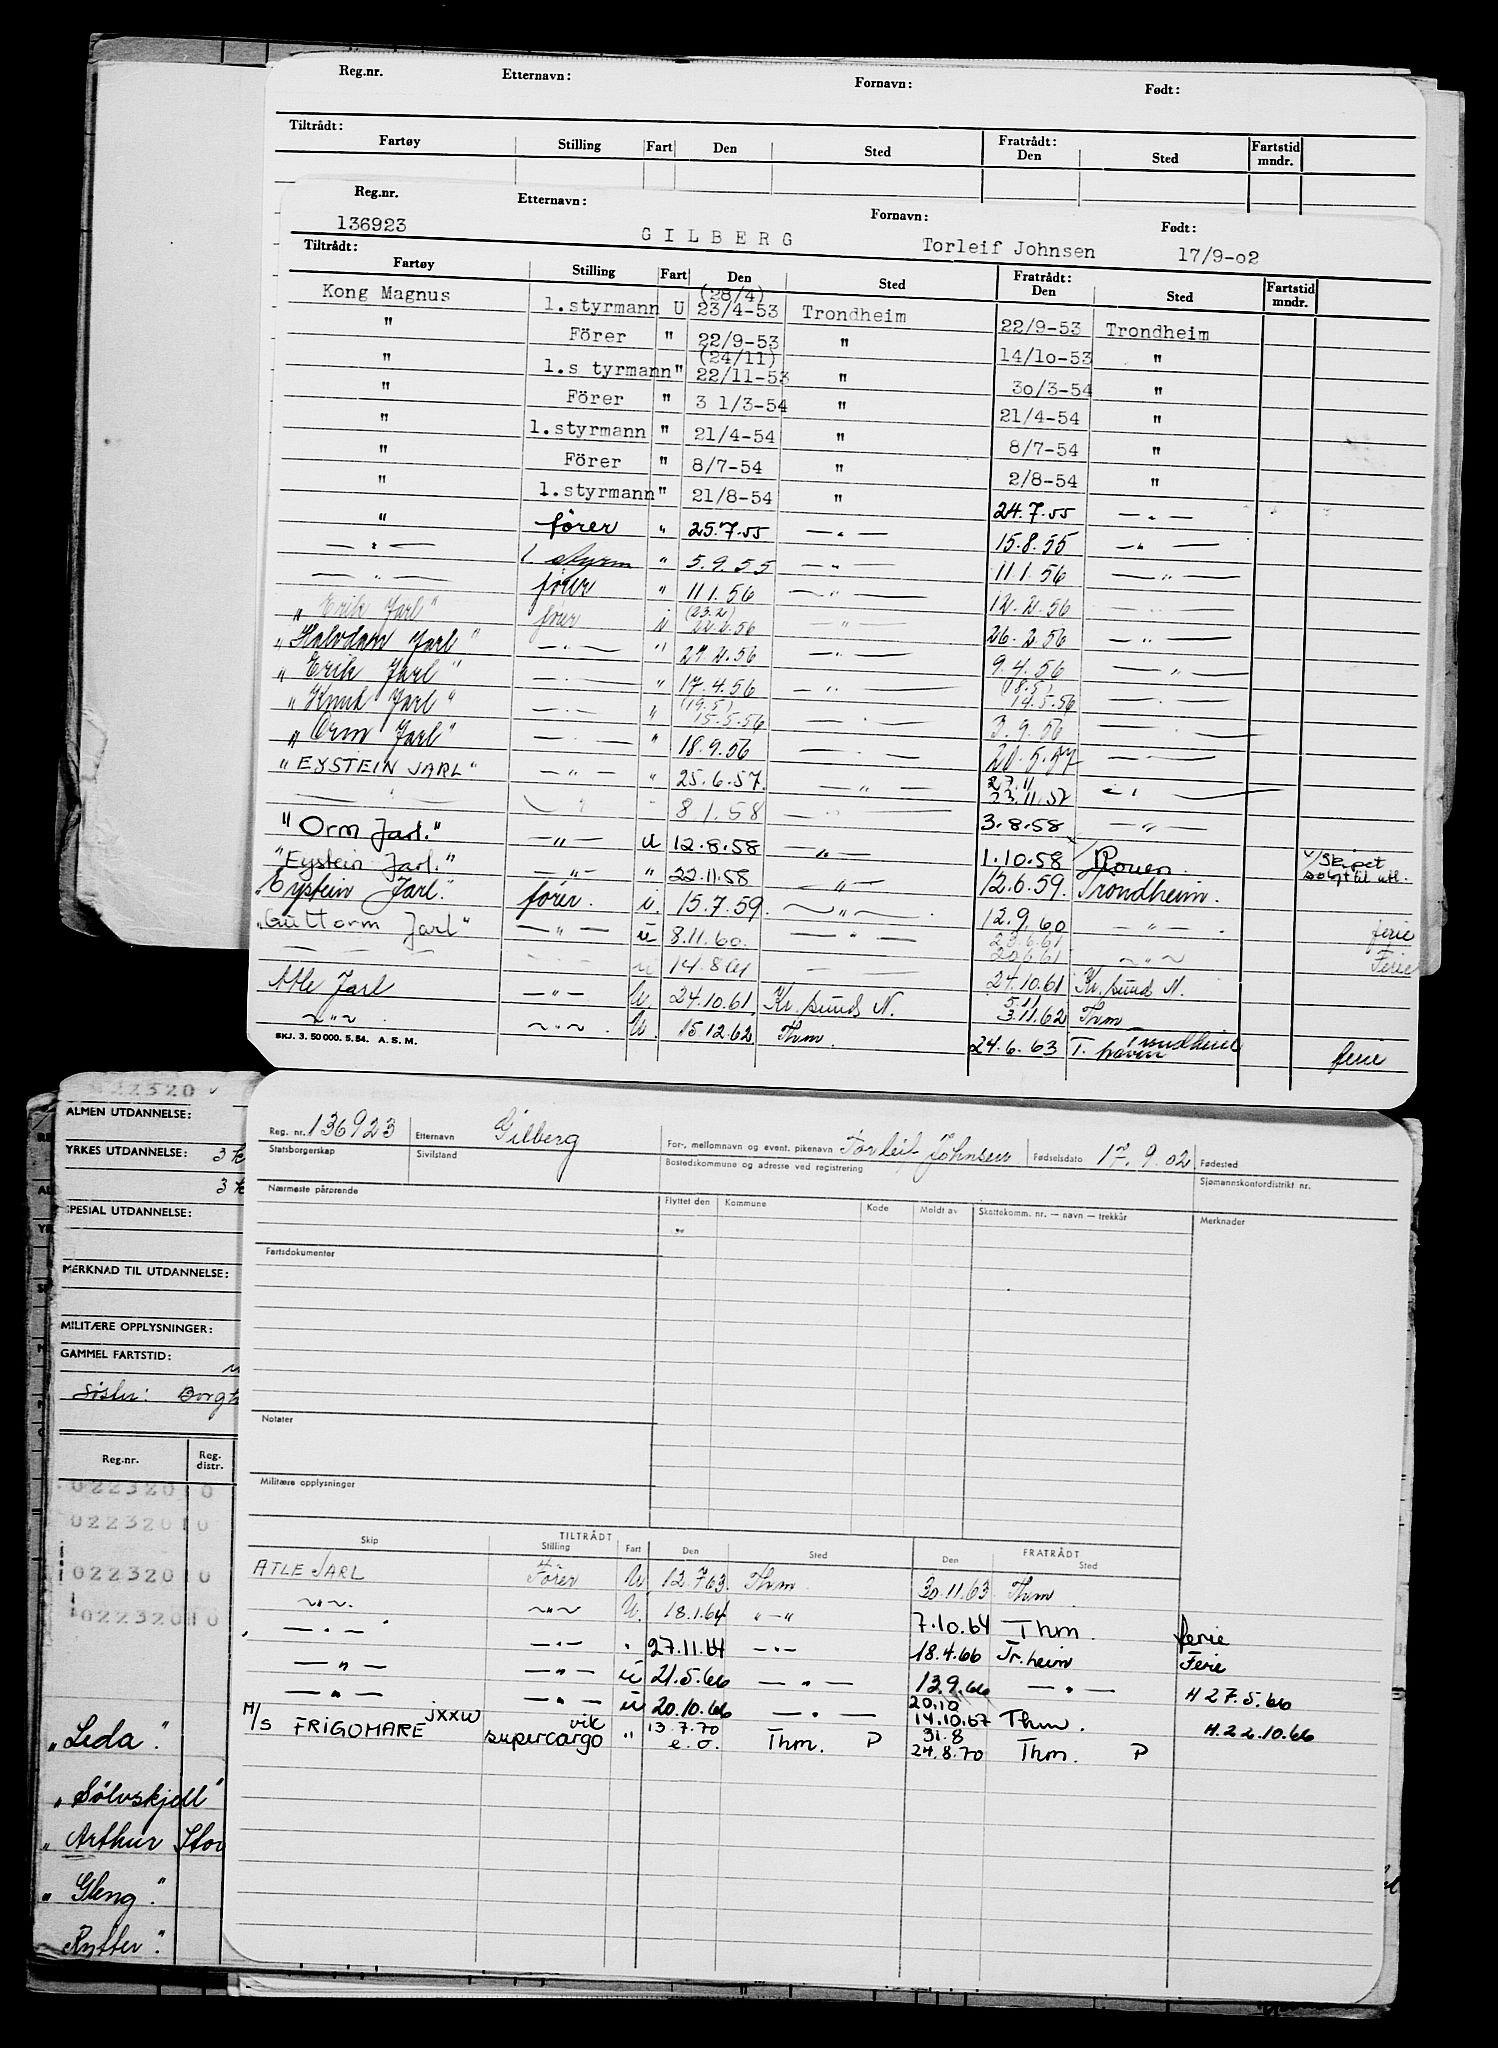 Reg.nr. Etternavn: Fornavn: Født:
Tiltrådt: Fratrådt:
Fartøy Stilling Fart Den Sted Den Sted Fartstid mndr.
Reg.nr. Etternavn: Fornavn: Født:
136923 GILBERG Torleif Johnsen 17/9-02
Tiltrådt: Fratrådt:
Fartøy Stilling Fart Den Sted Den Sted Fartstid mndr.
Kong Magnus 1.styrmann U (28/4) 23/4-53 Trondheim 22/9-53 Trondheim
" Förer " 22/9-53 " 14/10-53 "
" 1.s tyrmann " (24/11) 22/11-53 " 30/3-54 "
" Förer " 3 1/3-54 " 21/4-54 "
" 1.styrmann " 21/4-54 " 8/7-54 "
" Förer " 8/7-54 " 2/8-54 "
" 1.styrmann " 21/8-54 " 24.7.55 — " —
" förer " 25.7.55 — " — 15.8.55 — " —
— " — 1. styrm " 5.9.55 — " — 11.1.56 — " —
— " — förer " 11.1.56 — " — 12.2.56
"Erik Jarl" förer i (23.2) 22.2.56 — " — 26.2.56 — " —
"Halvdan Jarl" — " — " 27.2.56 — " — 9.4.56 — " —
"Erik Jarl" — " — " 17.4.56 — " — (18.5) 14.5.56 — " —
"Knut Jarl" — " — " (19.5) 15.5.56 — " — 3.9.56 — " —
"Orm Jarl" — " — " 18.9.56 — " — 20.5.57 — " —
"EYSTEIN JARL" — " — " 25.6.57. — " — 27.11 23.11.57 — " —
— " — — " — " 8.1.58 3.8.58 — " —
"Orm Jarl." — " — U 12.8.58 — " — 1.10.58 Rouen. Skipet solgt til utl.
"Eystein Jarl." — " — " 22.11.58 — " — 12.6.59. Trondheim.
"Eystein Jarl." förer. i. 15.7.59. — " — 12.9.60 — " — ferie
"Guttorm Jarl" — " — u 8.11.60. — " — 23.6.61 20.6.61 — " — Ferie
— — — " — u 14.8.61 — 24.10.61 Kr.sund N.
Atle Jarl — " — U. 24.10.61. Kr. sund N. 5.11 3.11.62 Thm
— " — — " — U. 15.12.62 Thm. 24.6.63 T. haven Trondheim ferie
SKJ. 3. 50 000. 5. 54. A. S. M.
022320
ALMEN UTDANNELSE:
YRKES UTDANNELSE: 3
3
SPESIAL UTDANNELSE:
MERKNAD TIL UTDANNELSE:
MILITÆRE OPPLYSNINGER:
GAMMEL FARTSTID:
Søster: Borgh
Reg.nr. Reg. distr.
022320 10
022320 10
022320 10
022320 10
"Leda".
"Sölvskjell"
"Arthur Stor
"Gleng".
Rytter".
Reg. nr. 136923 Etternavn Gilberg For-, mellomnavn og event. pikenavn Torleif Johnsen Fødselsdato 17.9.02 Fødested
Statsborgerskap Sivilstand Bostedskommune og adresse ved registrering Sjømannskontordistrikt nr.
Nærmeste pårørende Flyttet den Kommune Kode Meldt av Skattekomm. nr. — navn — trekkår Merknader
Fartsdokumenter
Notater
Militære opplysninger
TILTRÅDT FRATRÅDT
Skip Stilling Fart Den Sted Den Sted
ATLE JARL Förer U. 12.7.63. Thm. 30.11.63 Thm.
— " — — " — U. 18.1.64 " — " 7.10.64 Thm. ferie
— " — — " — " 27.11.64 — " — 18.4.66 Tr.heim Ferie
— " — — " — u 21.5.66 — " — 13.9.66 — " — H 27.5.66
— " — — " — u 20.10.66 — " — 20.10 14.10.67 Thm. H.22.10.66
M/S FRIGOMARE JXXW vik supercargo " 13.7.70 e.o. Thm. P 31.8 24.8.70 Thm. P